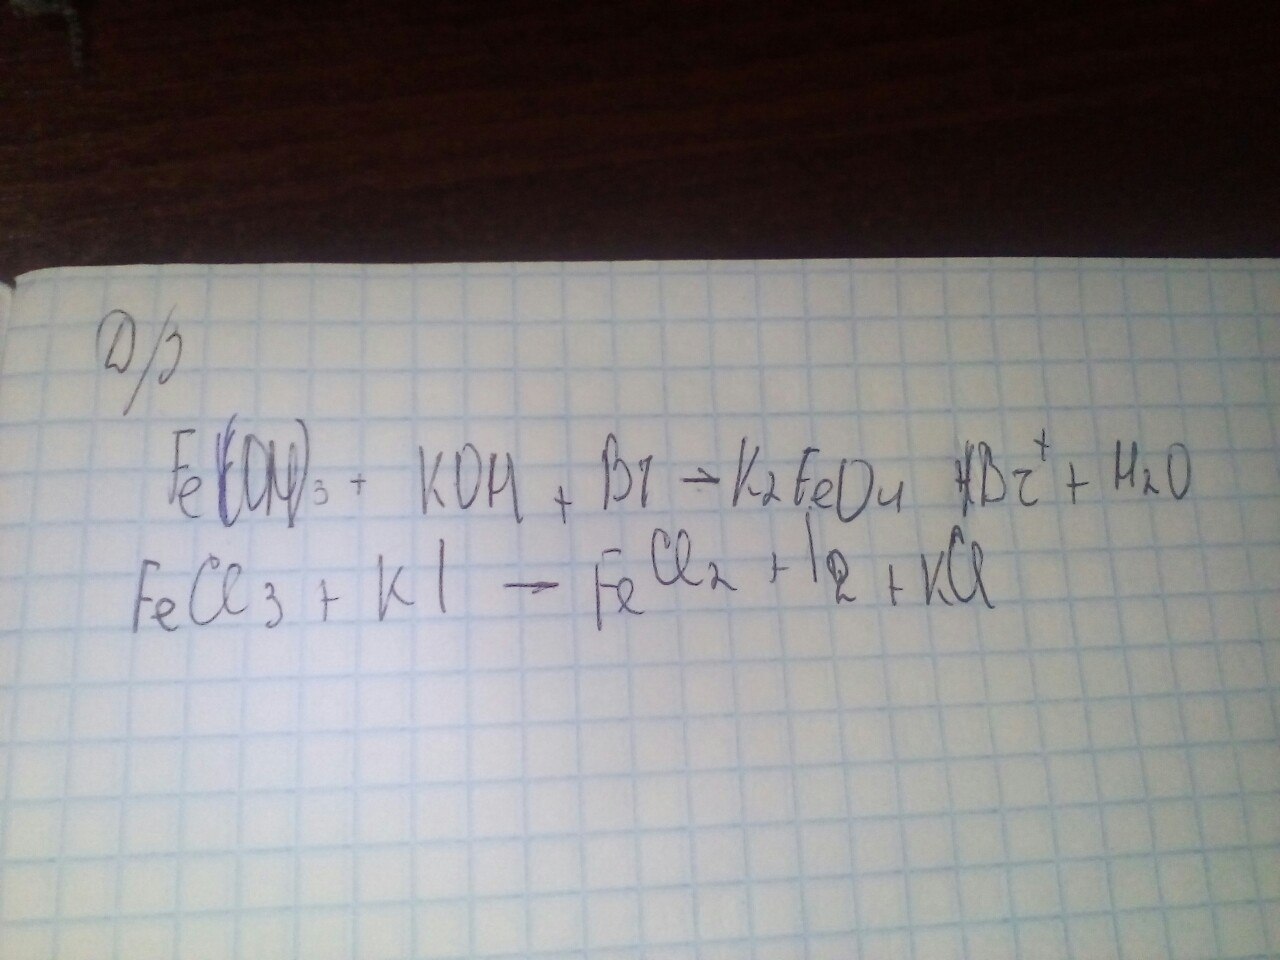 Д/з
Fe(OH)3 + KOH + Br → K2FeO4 KBr + + H2O
FeCl3 + KI → FeCl2 + I2 + KCl